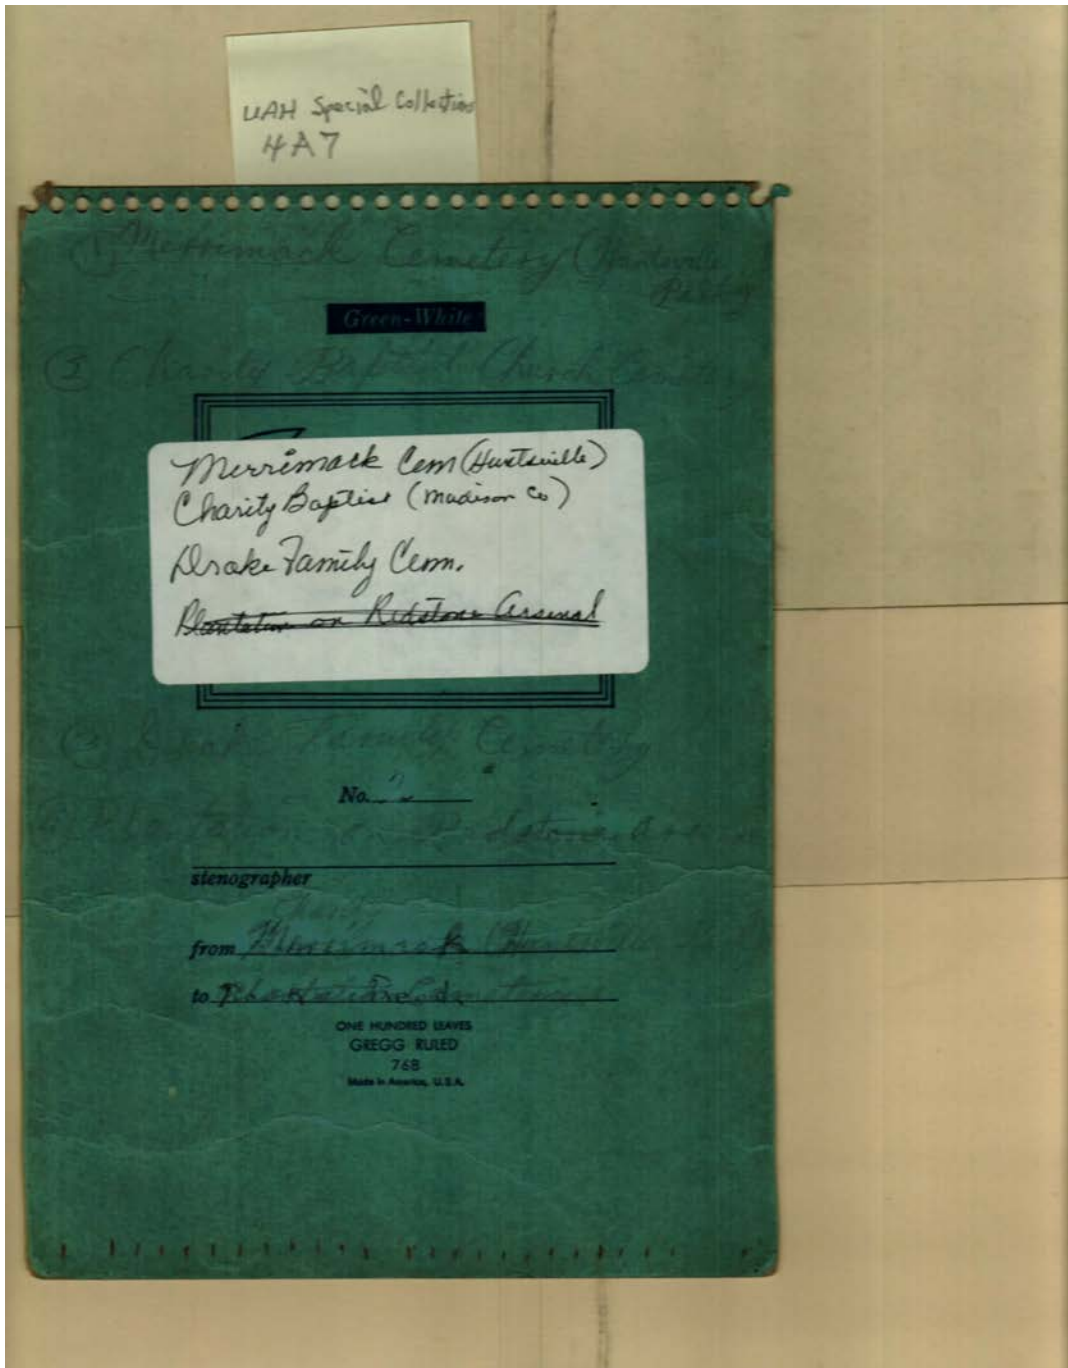 UAH Special Collections
4A7
① Merrimack Cemetery (Huntsville
Green-White
② Charity Baptist Church Cemetery
Merrimack Cem (Huntsville)
Charity Baptist (Madison Co)
Drake Family Cem.
Plantation on Redstone Arsenal
③ Drake Family Cemetery
No.
Plantation on Redstone
stenographer
Charity
from Merrimack (Huntsville
to
ONE HUNDRED LEAVES
GREGG RULED
768
Made in America, U.S.A.